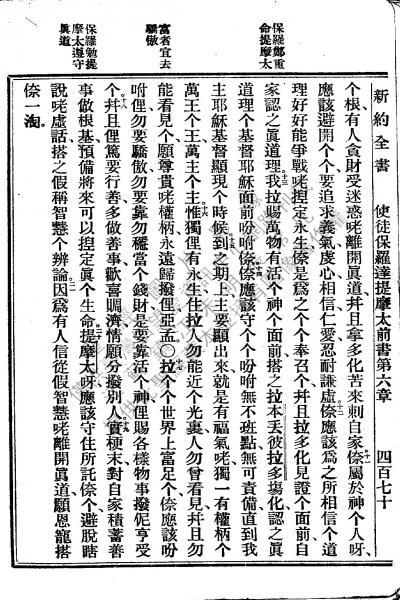 新約全書 使徒保羅達提摩太前書第六章 四百七十
保羅鄭重
命提摩太
富者宜去
驕傲
保羅勉提
摩太遵守
眞道
个根、有人貪財受迷惑咾離開眞道、并且拿多化苦來刺自家、十一儂屬於神个人呀、
應該避開个个、要追求義氣、虔心、相信、仁愛、忍耐、謙虛、儂應該爲之所相信个道
理好好能爭戰咾揑定永生、儂是爲之个个奉召个、并且拉多化見證个面前自
家認之眞道理、十三我拉賜萬物有活个神个面前、搭之拉本丟彼拉多塲化認之眞
道理个基督耶穌面前吩咐儂、儂應該守个个吩咐、無不班點無可責備、直到我
主耶穌基督顯現个時候、到之期上主要顯出來、就是有福氣咾獨一有權柄个、
萬王个王、萬主个主、惟獨俚有永生、住拉人勿能近个光裏、人勿曾看見、并且勿
能看見个、願尊貴咾權柄永遠歸撥俚、亞孟、〇拉个个世界上富足个、儂應該吩
咐俚勿要驕傲、勿要靠勿穩當个錢財、是要靠活个神、俚賜各樣物事撥伲享受
个、并且俚篤要行善、多做善事、歡喜賙濟、情願分撥別人、實梗末對自家積蓄善
事、做根基預備將來、可以揑定眞个生命、提摩太呀、應該守住所託儂个、避脫瞎
說咾虛話、搭之假稱智慧个辨論、因爲有人信從假智慧咾離開眞道、願恩寵搭
儂一淘、